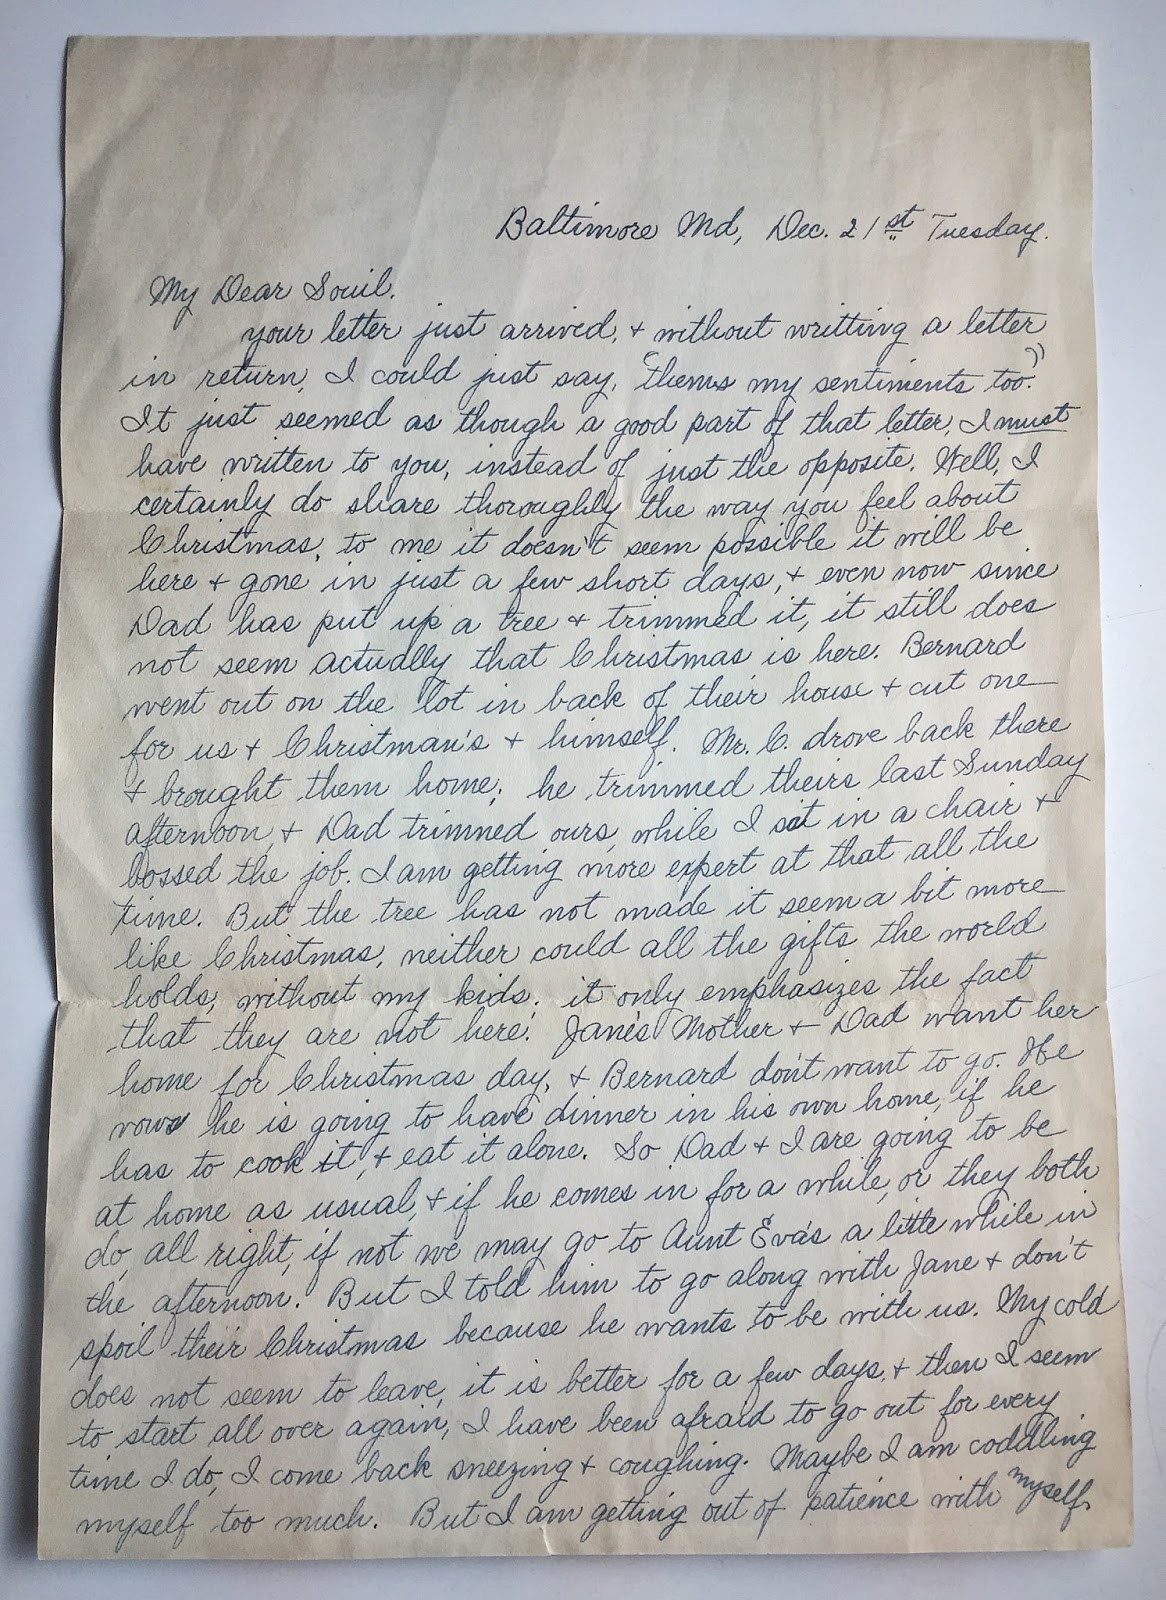 Baltimore Md, Dec. 21st Tuesday.
My Dear Souil.
your letter just arrived, + without writting a letter
in return, I could just say, "thems my sentiments too."
It just seemed as though a good part of that letter, I must
have written to you, instead of just the opposite. Well, I
certainly do share thoroughly the way you feel about
Christmas, to me it doesn't seem possible it will be
here + gone in just a few short days, + even now since
Dad has put up a tree + trimmed it, it still does
not seem actually that Christmas is here. Bernard
went out on the lot in back of their house + cut one
for us + Christman's + himself. Mr. C. drove back there
+ brought them home; he trimmed theirs last Sunday
afternoon, + Dad trimmed ours, while I sat in a chair +
bossed the job. I am getting more expert at that all the
time. But the tree has not made it seem a bit more
like Christmas, neither could all the gifts the world
holds, without my kids; it only emphasizes the fact
that they are not here. Jane's Mother + Dad want her
home for Christmas day, + Bernard don't want to go. He
vows he is going to have dinner in his own home, if he
has to cook it, + eat it alone. So Dad + I are going to be
at home as usual, + if he comes in for a while, or they both
do, all right, if not we may go to Aunt Eva's a little while in
the afternoon. But I told him to go along with Jane + don't
spoil their Christmas because he wants to be with us. My cold
does not seem to leave, it is better for a few days, + then I seem
to start all over again, I have been afraid to go out for every
time I do, I come back sneezing + coughing. Maybe I am coddling
myself too much. But I am getting out of patience with myself.